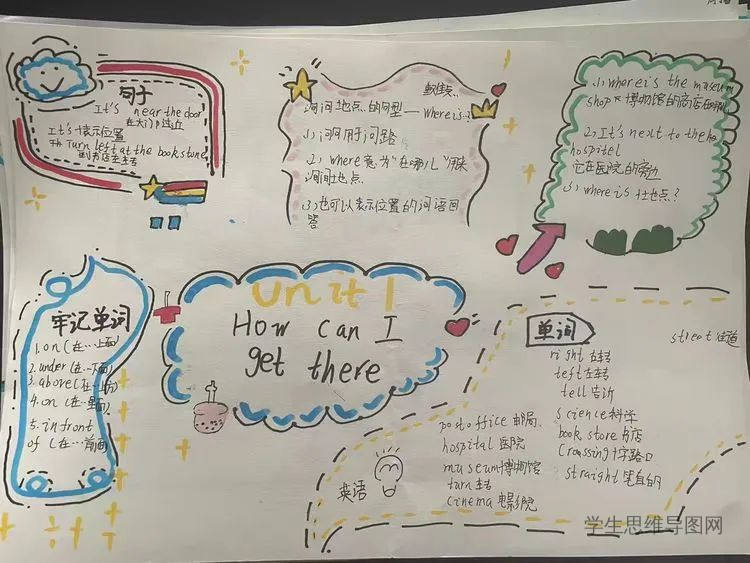 句子
It's near the door
在大门附近
It's+表示位置
Turn left at the book stone
到书店左转
询问地点的句型——Where is?
1)询问用于问路
2) Where意为"在哪儿"用来
询问地点.
3)也可以表示位置的词语回
答
1) Where is the museum
shop? 博物馆的商店在哪
2) It's next to the ho
hospitel
它在医院的旁边
3) where is +地点?
牢记单词
1. on (在…上面)
2. under (在…下面)
3. above (在…上方)
4. on (在…里面)
5. in front
of (在…前面)
Unit 1
How can I
get there
单词
street 街道
right 右转
teft 左转
tell 告诉
science 科学
book store 书店
Crossing 十字路口
straight 笔直的
post office 邮局
hospital 医院
museum 博物馆
turn 走转
cinema 电影院
英语
学生思维导图网